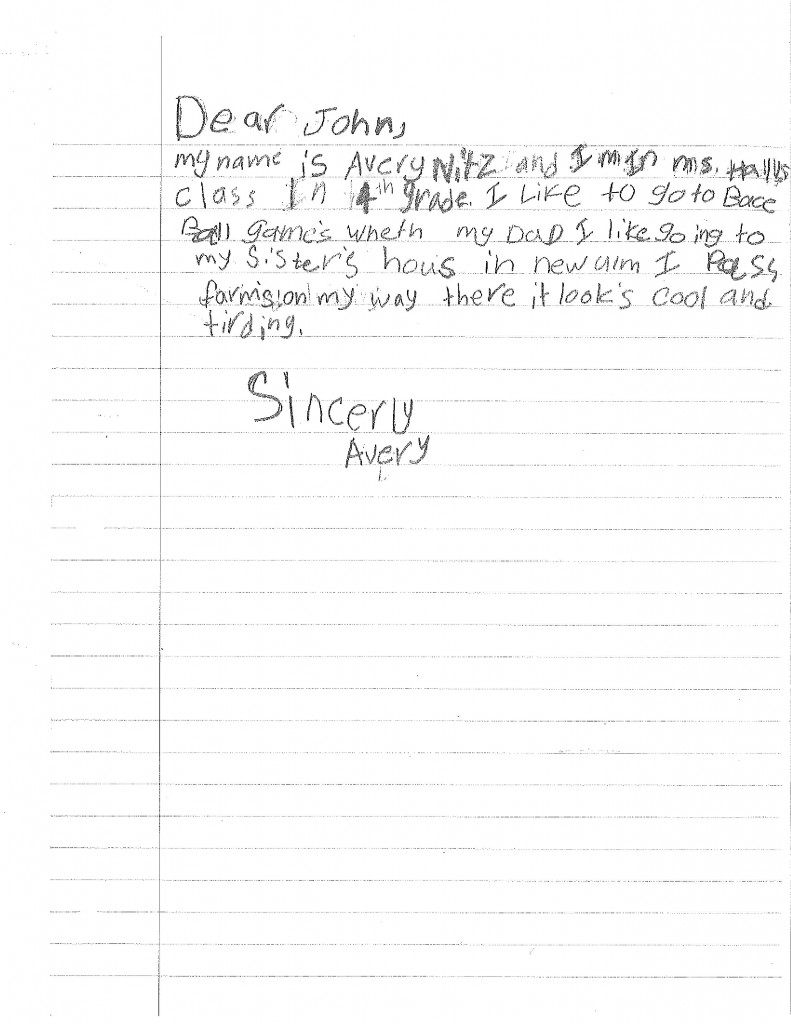 Dear John,
my name is Avery Nitz and I m In ms. Hall's
class In 4th grade. I Like to go to Bace
Ball game's wheth my DaD I like going to
my Sister's hous in new ulm I Pass
farmis on my way there it look's cool and
tirding.
Sincerly
Avery